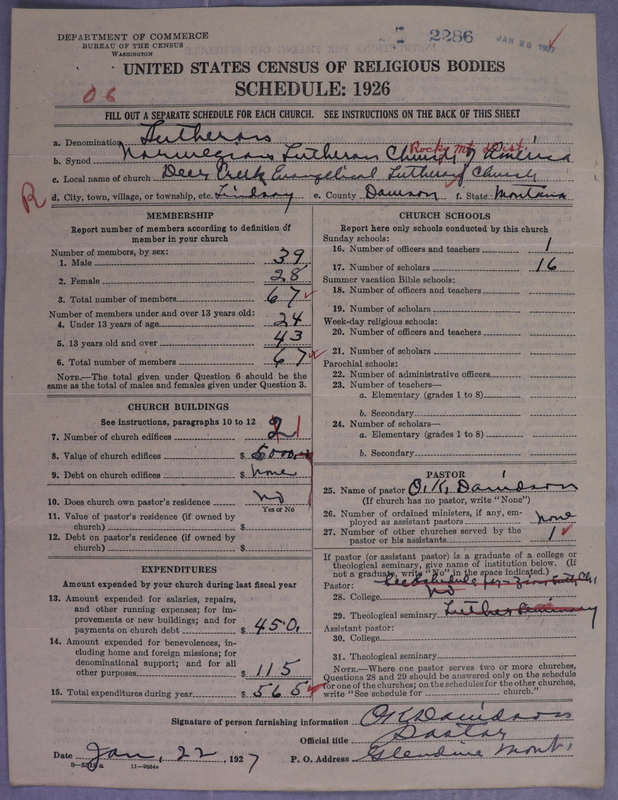 DEPARTMENT OF COMMERCE
BUREAU OF THE CENSUS
WASHINGTON
2286 JAN 28 1927
UNITED STATES CENSUS OF RELIGIOUS BODIES
SCHEDULE: 1926
06
FILL OUT A SEPARATE SCHEDULE FOR EACH CHURCH. SEE INSTRUCTIONS ON THE BACK OF THIS SHEET
a. Denomination Lutheran
Rocky Mt. Dist.
b. Synod Norwegian Lutheran Church of America
c. Local name of church Deer Creek Evangelical Lutheran Church
R d. City, town, village, or township, etc. Lindsay e. County Dawson f. State Montana
MEMBERSHIP
Report number of members according to definition of
member in your church
Number of members, by sex:
1. Male 39
2. Female 28
3. Total number of members 67
Number of members under and over 13 years old:
4. Under 13 years of age 24
5. 13 years old and over 43
6. Total number of members 67
NOTE.—The total given under Question 6 should be the
same as the total of males and females given under Question 3.
CHURCH BUILDINGS
See instructions, paragraphs 10 to 12
7. Number of church edifices 2 1
8. Value of church edifices $ 6000.00
9. Debt on church edifices $ None
10. Does church own pastor's residence No
Yes or No
11. Value of pastor's residence (if owned by
church) $
12. Debt on pastor's residence (if owned by
church) $
EXPENDITURES
Amount expended by your church during last fiscal year
13. Amount expended for salaries, repairs,
and other running expenses; for im-
provements or new buildings; and for
payments on church debt $ 450.
14. Amount expended for benevolences, in-
cluding home and foreign missions; for
denominational support; and for all
other purposes $ 115
15. Total expenditures during year $ 565
CHURCH SCHOOLS
Report here only schools conducted by this church
Sunday schools:
16. Number of officers and teachers 1
17. Number of scholars 16
Summer vacation Bible schools:
18. Number of officers and teachers
19. Number of scholars
Week-day religious schools:
20. Number of officers and teachers
21. Number of scholars
Parochial schools:
22. Number of administrative officers
23. Number of teachers—
a. Elementary (grades 1 to 8)
b. Secondary
24. Number of scholars—
a. Elementary (grades 1 to 8)
b. Secondary
PASTOR
25. Name of pastor O. K. Davidson
(If church has no pastor, write "None")
26. Number of ordained ministers, if any, em-
ployed as assistant pastors none
27. Number of other churches served by the
pastor or his assistants 1
If pastor (or assistant pastor) is a graduate of a college or
theological seminary, give name of institution below. (If
not a graduate, write "No" in the space indicated.)
Pastor: See schedule for Ch.
28. College No
29. Theological seminary Luther Seminary
Assistant pastor:
30. College
31. Theological seminary
NOTE.—Where one pastor serves two or more churches,
Questions 28 and 29 should be answered only on the schedule
for one of the churches; on the schedules for the other churches,
write "See schedule for church."
Signature of person furnishing information O K Davidson
Official title Pastor
Date Jan. 22, 1927 P. O. Address Glendive Mont.
8—5319a 11—9664a